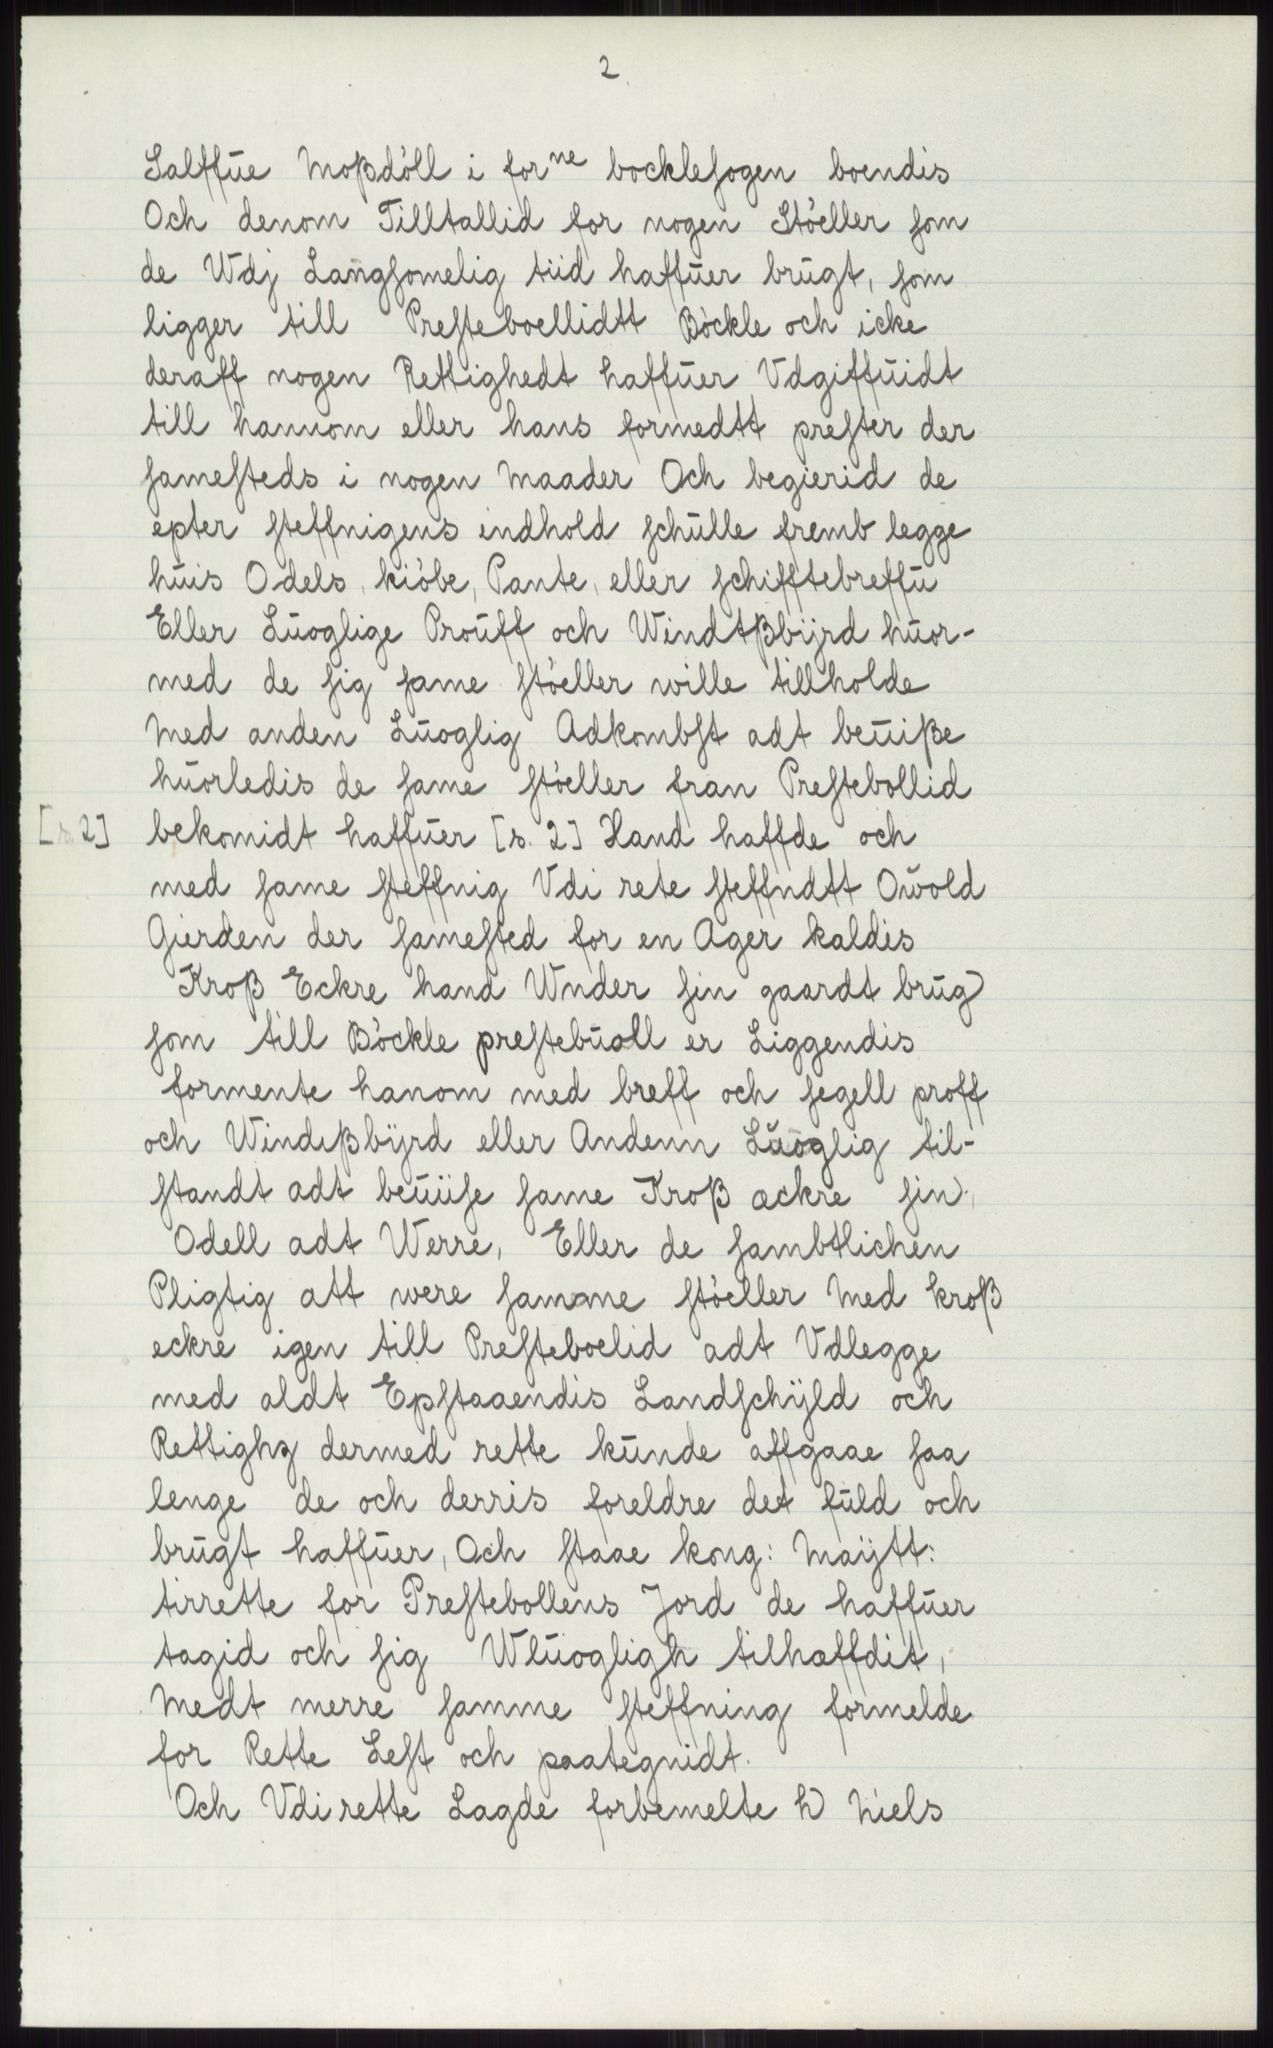 2
Salffūe Moßdöll i forne bocklesogen boendis
Och denom Tilltallid for nogen Stöeller som
de Wdj Langsomelig tiid haffūer brūgt, som
ligger till Presteboellidtt Böckle och icke
deraff nogen Rettighedt haffūer Vdgiffūidt
till hannom eller hans formedtt prester der
samesteds i nogen Maader Och begierid de
epter steffnigens indhold schūlle fremb legge
hūis Odels, kiöbe, Pante, eller schifftebreffū
Eller Lūoglige Proūff och Windtßbÿrd hūor-
med de sig same stöeller wille tillholde
Med anden Lūoglig Adkombst adt beūiße
hūorledis de same stöeller fran Prestebollid
[s. 2] bekomidt haffūer [s. 2] Hand haffde och
med same steffnig Vdi rete steffndtt Owold
Gierden der samested for en Ager kaldis
Kroß Eckre hand Wnder sin gaardt brūg
som till Böckle prestebūoll er Liggendis
formente hanom med breff och segell proff
och Windißbÿrd eller Andenn Lūoglig til-
standt adt beūiise same Kroß ackre sin
Odell adt Werre, Eller de sambtlichen
Pligtig att were samme stöeller Med kroß
eckre igen till Presteboelid adt Vdlegge
med aldt Epstaaendis Landschÿld och
Rettighz dermed rette kūnde affgaae saa
lenge de och derris foreldre det fūld och
brūgt haffūer, Och staae kong: Maÿtt:
tirrette for Prestebollens Jord de haffūer
tagid och sig Wlūogligh tilhaffdit,
Medt merre samme steffning formelde
for Rette Lest och paategnidt.
Och Vdi rette Lagde forbemelte h Niels